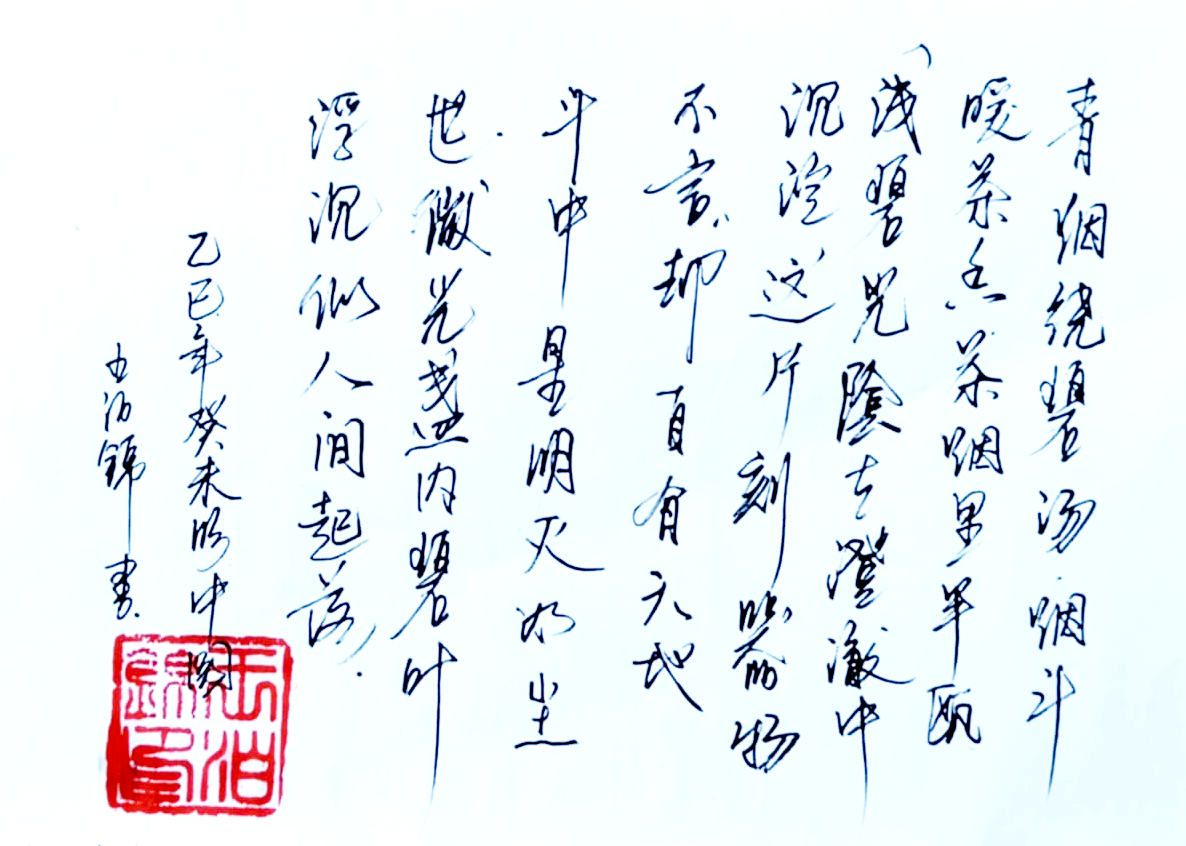 青烟绕碧汤烟斗
暖茶香茶烟里半瓯
浅碧光陰去澄澈中
沉淀这片刻器物
不言却自有天地
斗中星明灭如尘
世微光盏内碧叶
浮沉似人间起落
乙巳年癸未 中
伯锦书